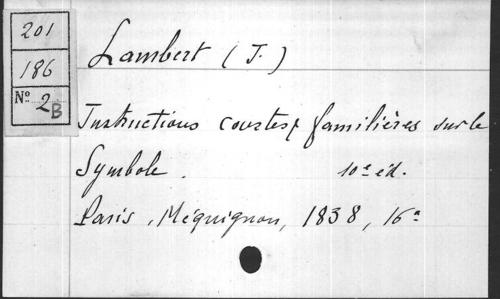 201
186
Nº 2B
Lambert (J.)
Instructions courtes & familières sur le
Symbole. 10e éd.
Paris, Méquignon, 1838, 16º